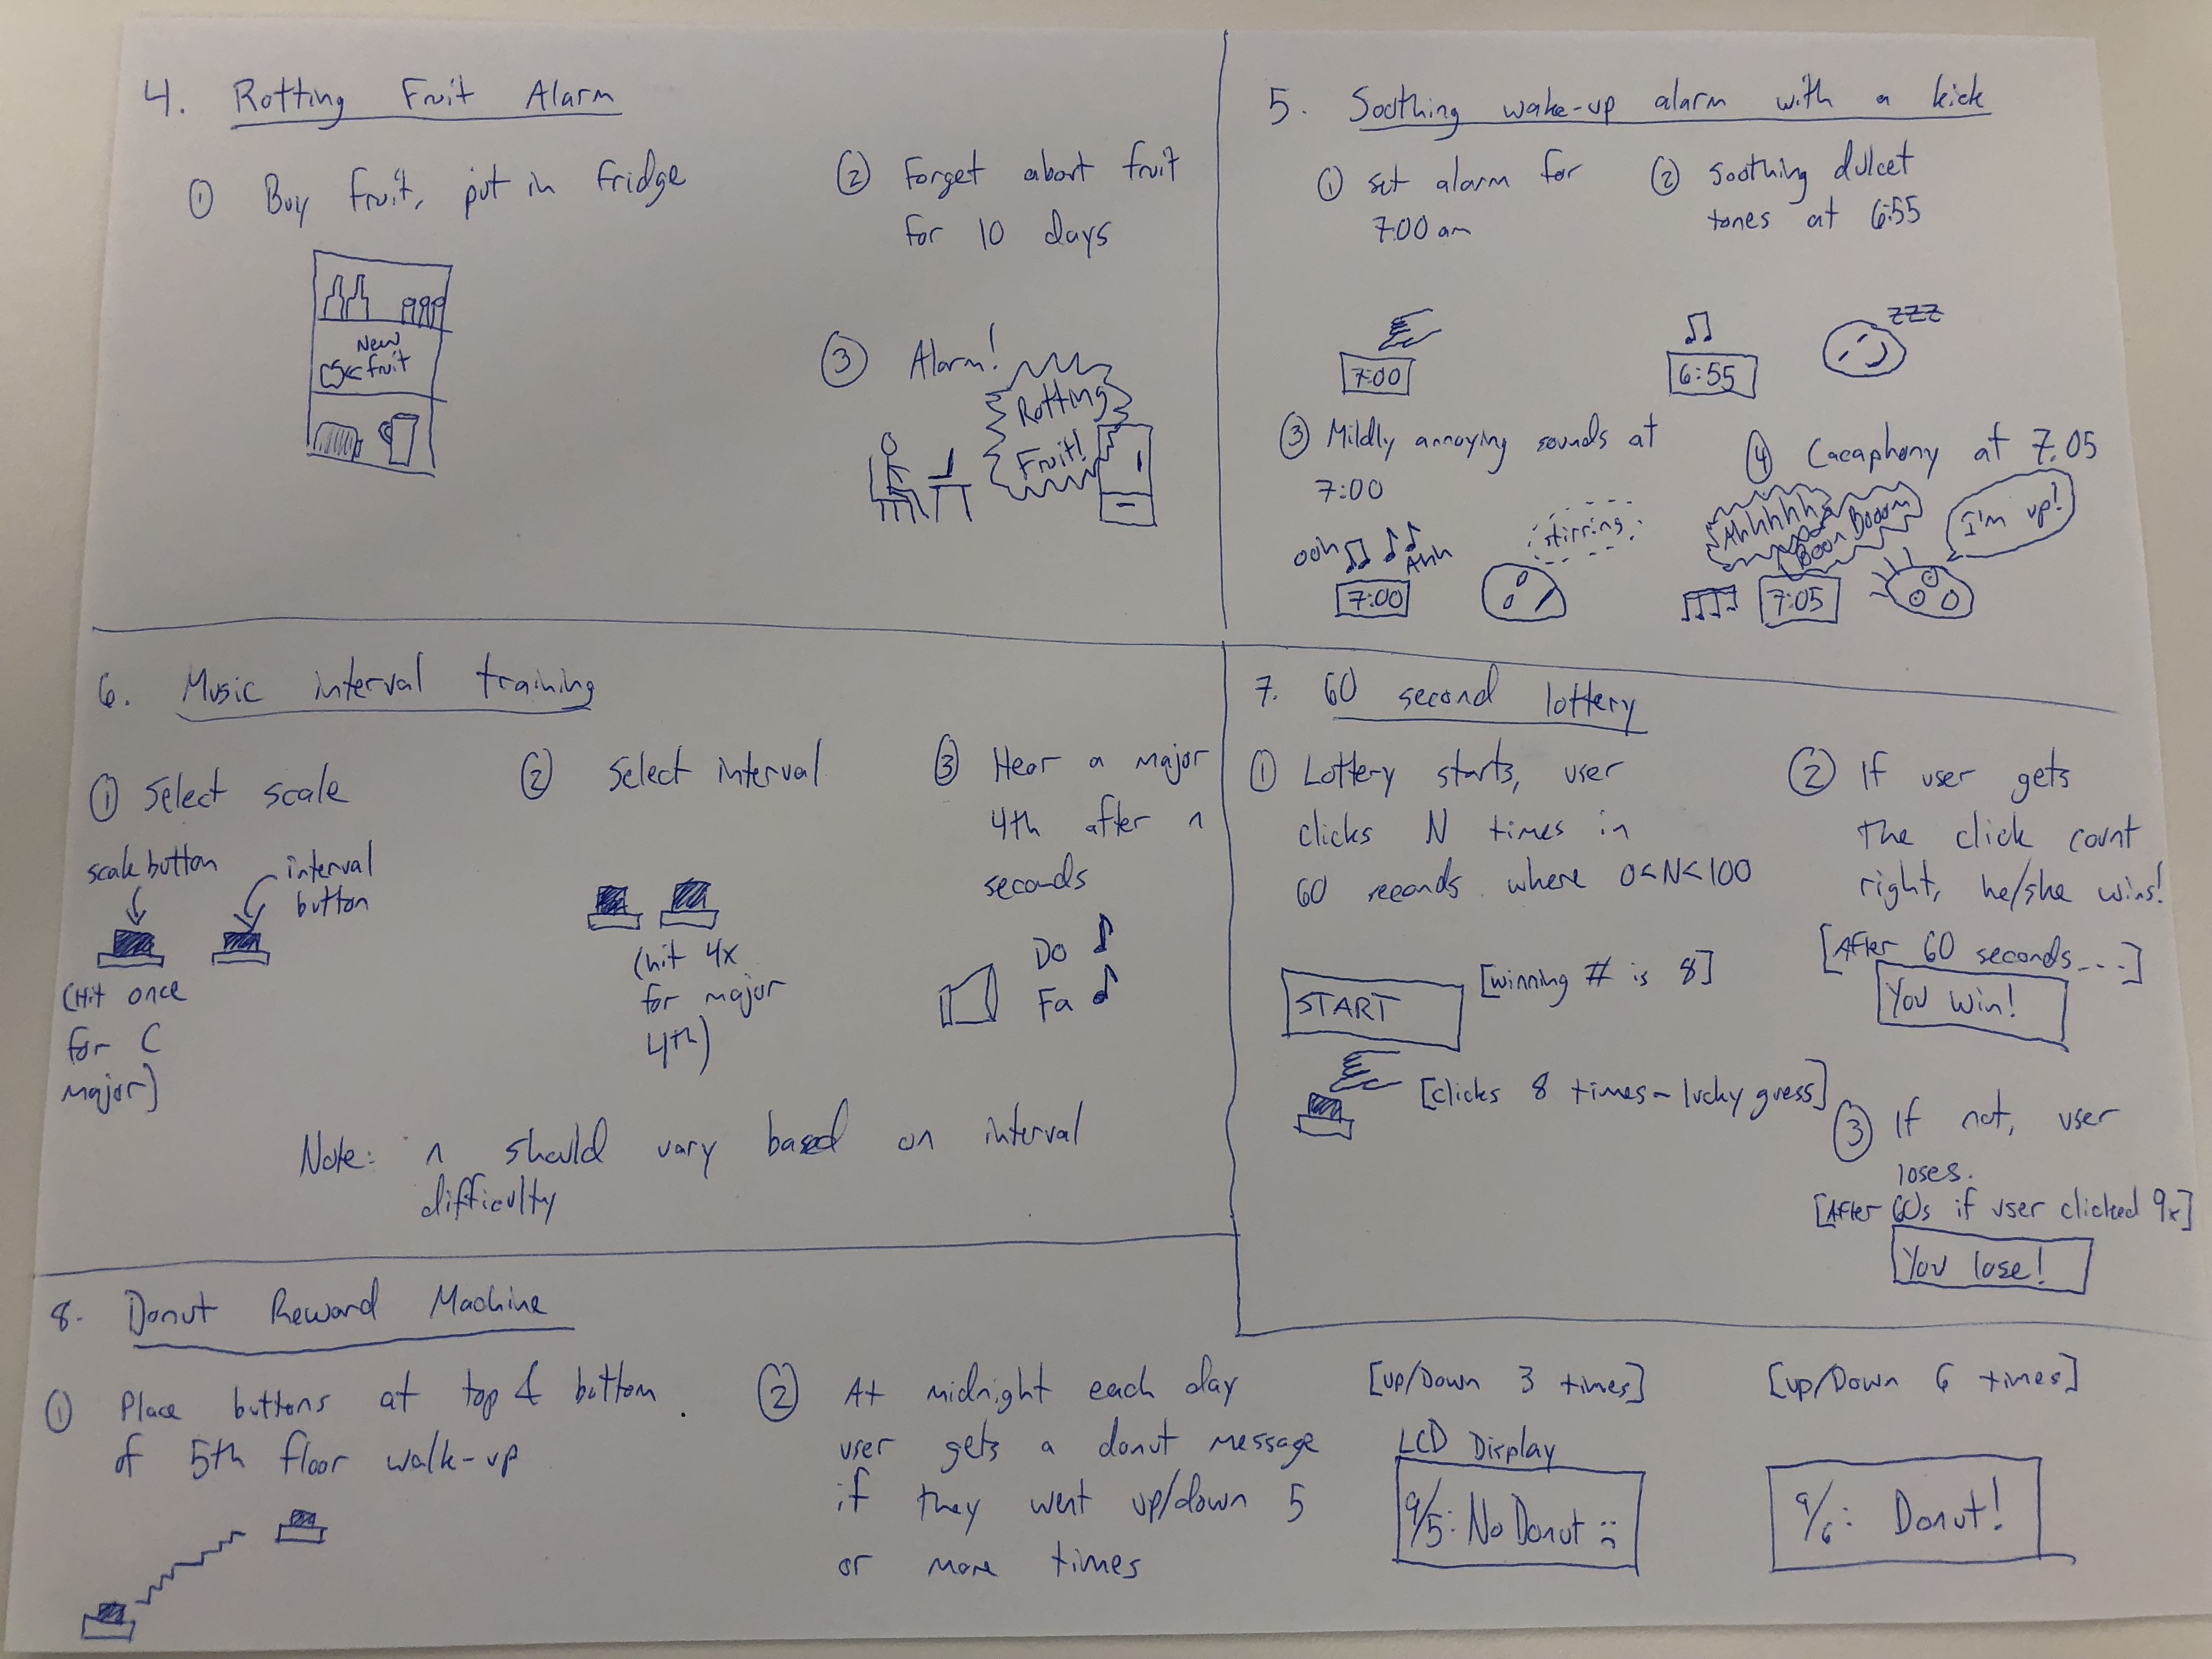 4. Rotting Fruit Alarm
① Buy fruit, put in fridge
New
fruit
② Forget about fruit
for 10 days
③ Alarm!
Rotting
Fruit!
5. Soothing wake-up alarm with a kick
① set alarm for
7:00 am
7:00
② soothing dulcet
tones at 6:55
6:55
zzz
③ Mildly annoying sounds at
7:00
7:00
stirring
④ Cacaphony at 7:05
Boom Boom
7:05
I'm up!
6. Music interval training
① Select scale
scale button
interval
button
(Hit once
for C
major)
② Select interval
(hit 4x
for major
4th)
③ Hear a major
4th after n
seconds
Do
Fa
Note: n should vary based on interval
difficulty
7. 60 second lottery
① Lottery starts, user
clicks N times in
60 seconds where 0<N<100
START
[winning # is 8]
[clicks 8 times - lucky guess]
② If user gets
the click count
right, he/she wins!
[After 60 seconds...]
You win!
③ If not, user
loses.
[After 60s if user clicked 9x]
You lose!
8. Donut Reward Machine
① Place buttons at top & bottom
of 5th floor walk-up
② At midnight each day
user gets a donut message
if they went up/down 5
or more times
[up/Down 3 times]
LCD Display
9/5: No Donut :(
[up/Down 6 times]
9/6: Donut!